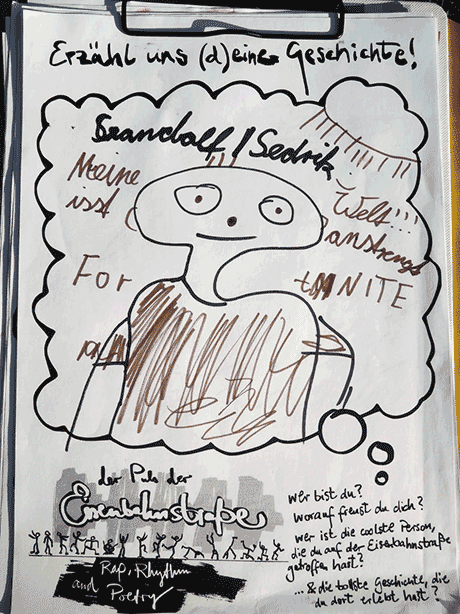 Erzähl uns (d)eine Geschichte!
/ Sedrik
Meine Welt!!!
isst
For tNITE
der Puls der
Eisenbahnstraße
Rap, Rhythm
and Poetry
wer bist du?
worauf freust du dich?
wer ist die coolste Person,
die du auf der Eisenbahnstraße
getroffen hast?
... & die tollste Geschichte, die
du dort erlebt hast?